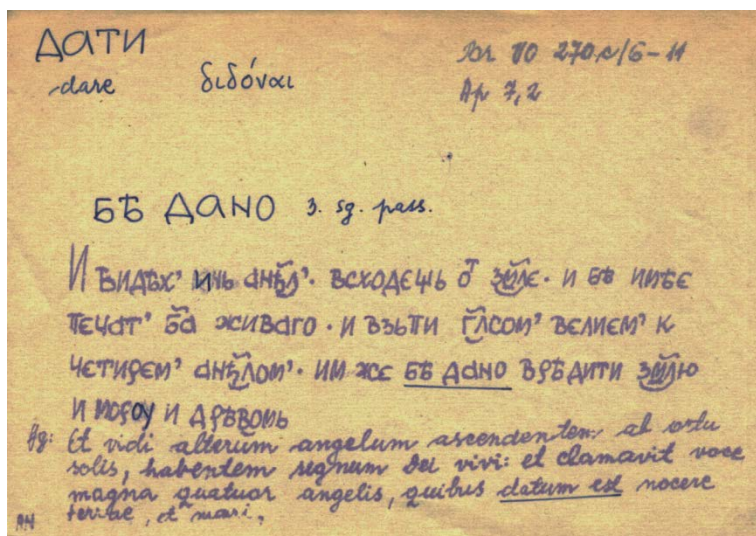 ДАТИ
dare διδόναι
Br VO 270c/6-11
Ap 7,2
БѢ ДАНО 3. sg. pass.
И ВИДѢХ' ИНЬ АНЂЛ'· ВСХОДЕЩЬ О͡Т ЗМЛЕ· И БѢ ИМѢЕ
ПЕЧАТ' БА ЖИВАГО· И ВЗЬПИ ГЛСОМ' ВЕЛИЕМ' К
ЧЕТИРЕМ' АНЂЛОМ'· ИМ ЖЕ БѢ ДАНО ВРѢДИТИ ЗМЛЮ
И МОРОУ И ДРѢВОМЬ
Vg: Et vidi alterum angelum ascendentem ab ortu
solis, habentem signum Dei vivi: et clamavit voce
magna quatuor angelis, quibus datum est nocere
terrae, et mari,